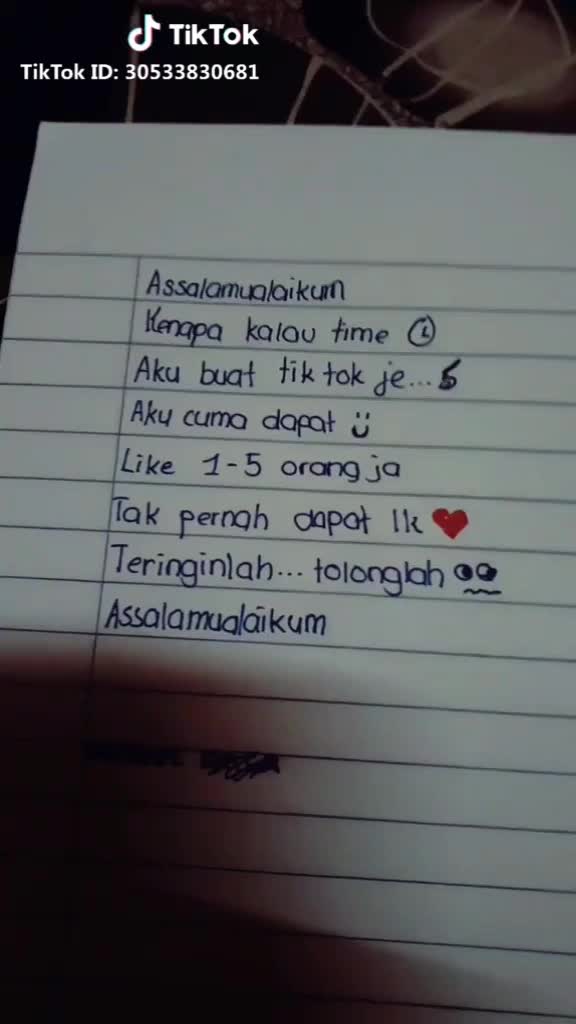 TikTok
TikTok ID: 30533830681
Assalamualaikum
Kenapa kalau time
Aku buat tik tok je...
Aku cuma dapat
Like 1-5 orang ja
Tak pernah dapat 1k ❤️
Teringinlah... tolonglah
Assalamualaikum